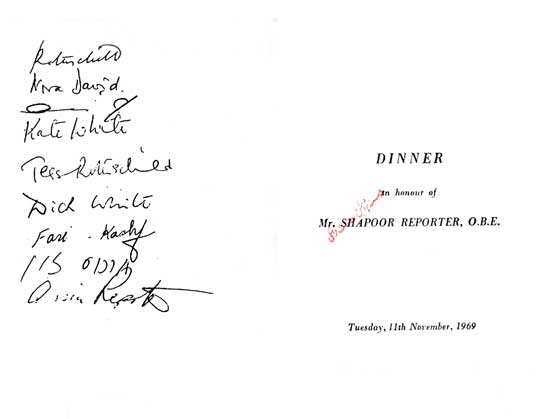 Rothschild
Nora David.
Kate White
Tess Rothschild
Dick White
Fari - Kashf
Reporter
DINNER
in honour of
Mr. SHAPOOR REPORTER, O.B.E.
Tuesday, 11th November, 1969